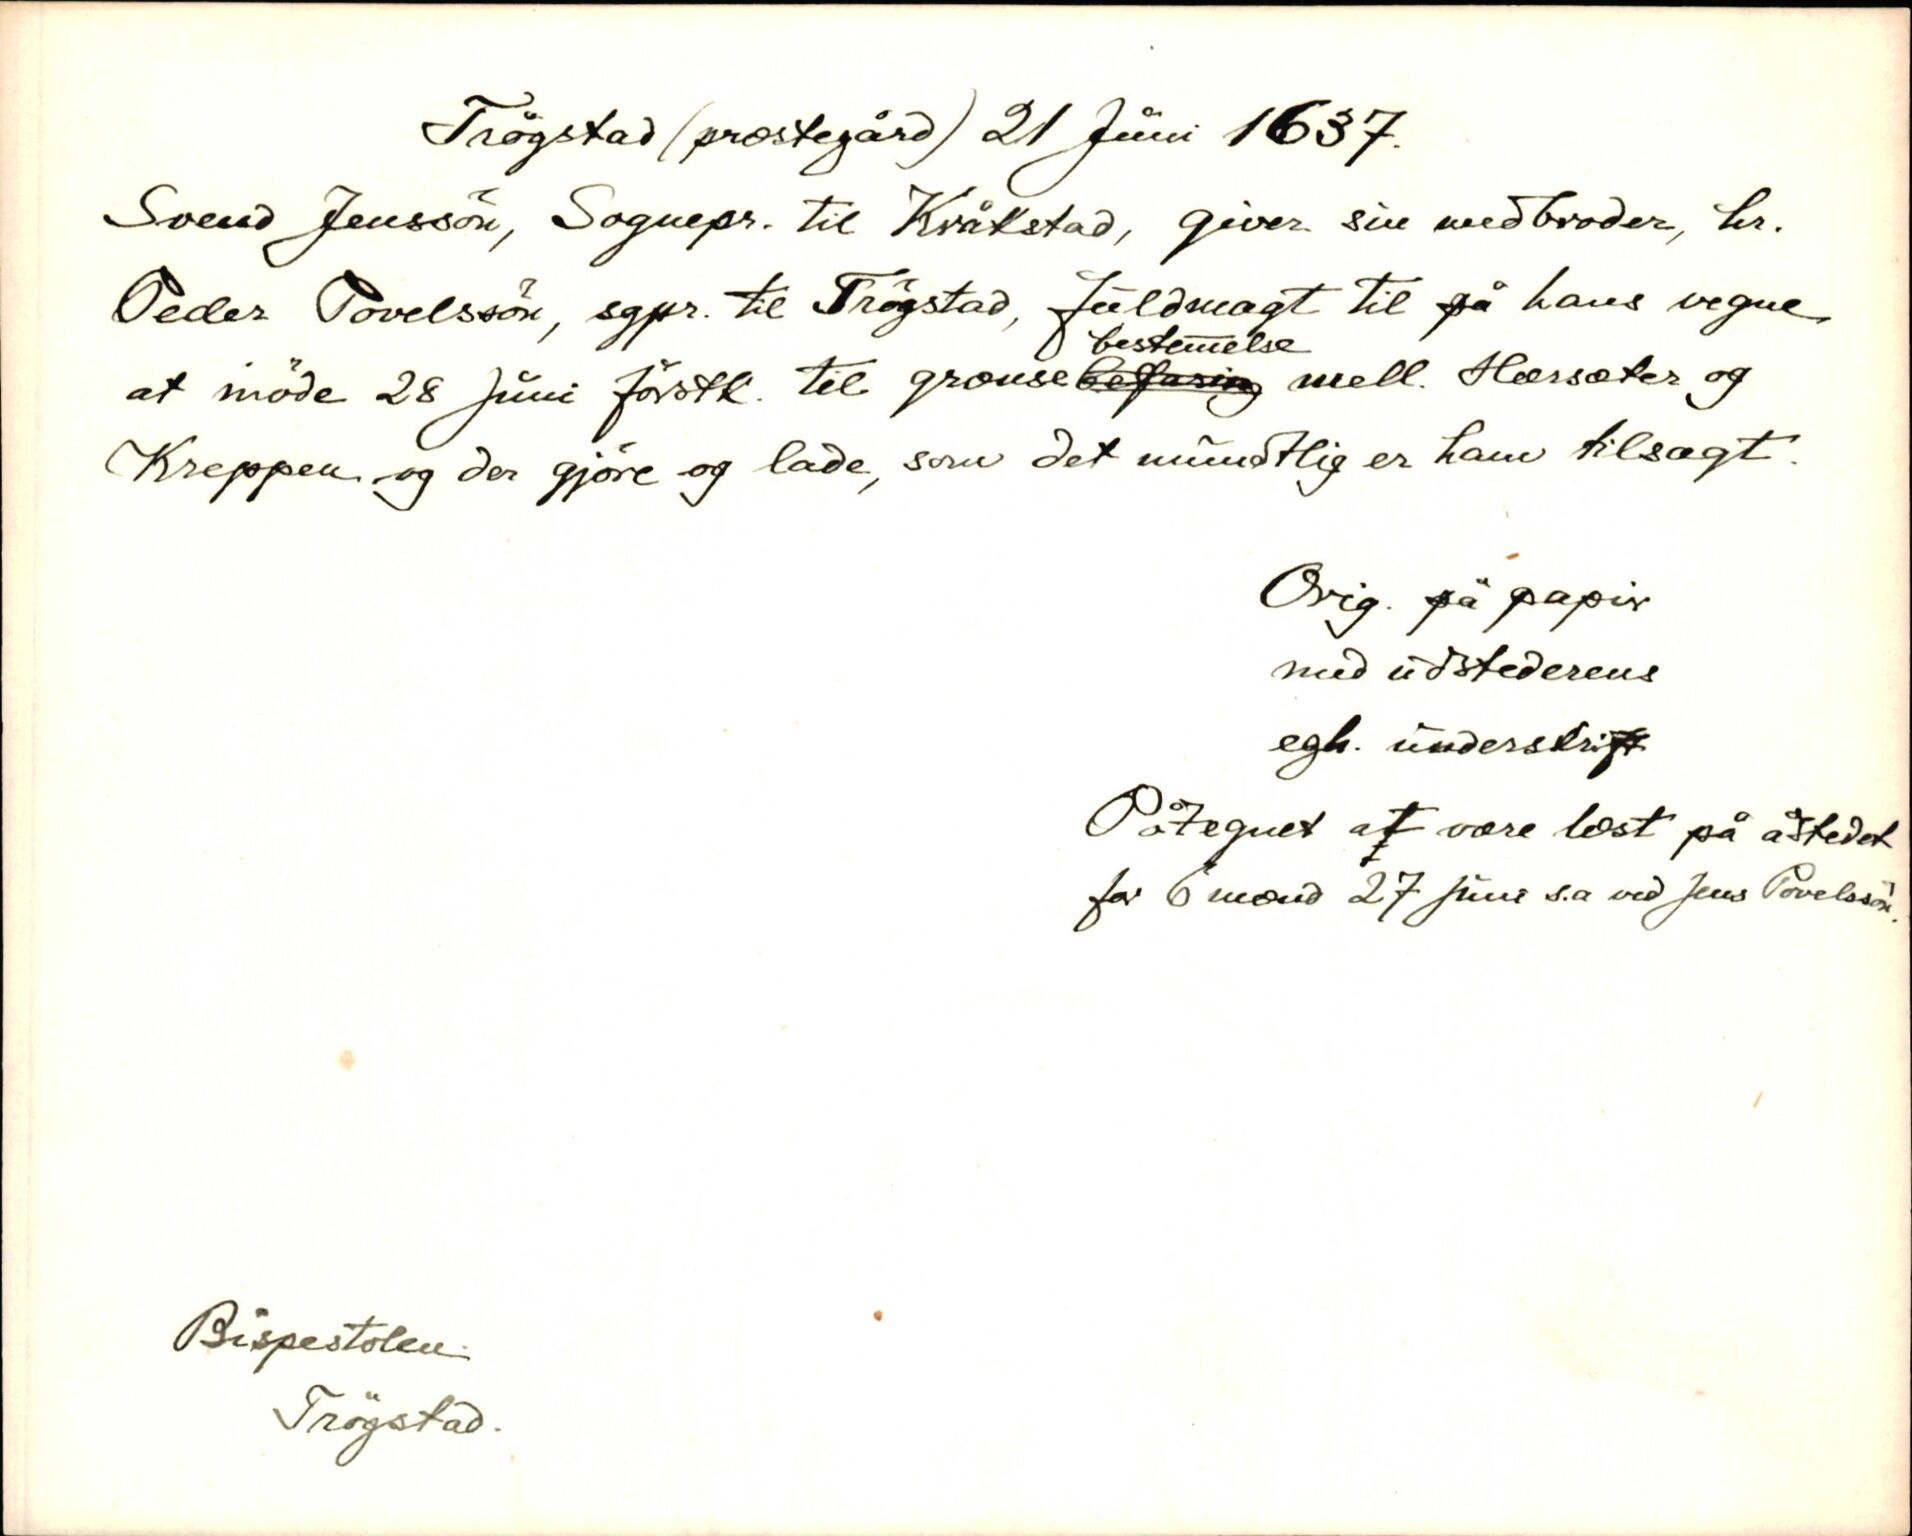 Trögstad (præstegård) 21 Juni 1637.
Svend Jenssön, Sognepr. til Kråkstad, giver sin medbroder, hr.
Peder Povelssön, sgpr. til Trögstad, fuldmagt til på hans vegne
bestemelse
at möde 28 Juni förstk. til grænse befaring mell. Hærsæter og
Kreppen og der gjöre og lade, som det mundtlig er ham tilsagt.
Orig. på papir
med udstederens
egh. underskrift
Påtegnet at være læst på åstedet
for 6 mænd 27 Juni s.a ved Jens Povelssön.
Bispestolen.
Trögstad.